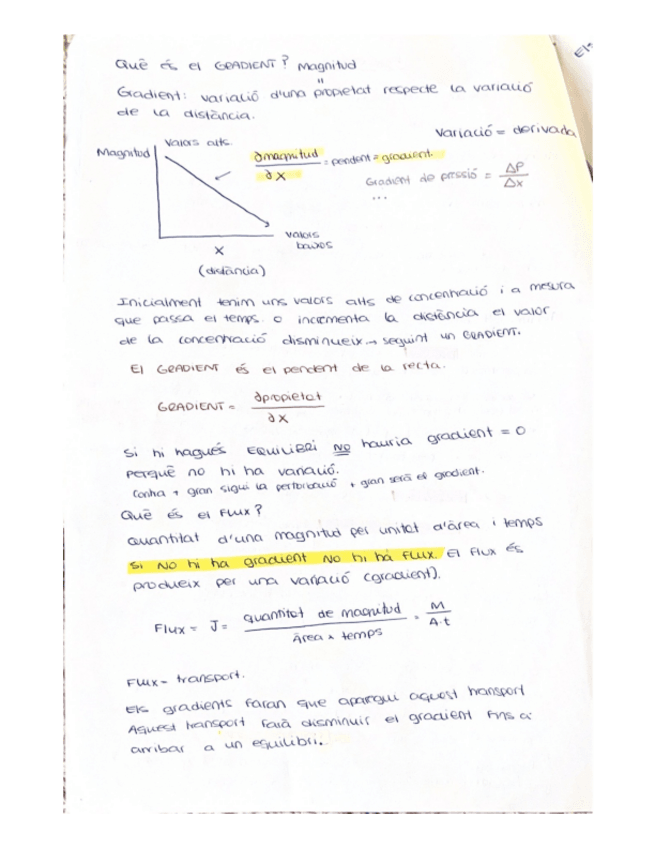 Què és el GRADIENT? Magnitud
"
Gradient: variació d'una propietat respecte la variació
de la distància.
Variació = derivada
Magnitud
Valors alts.
∂magnitud / ∂x = pendent = gradient.
Gradient de pressió = ΔP / Δx
...
Valors
baixos
x
(distància)
Inicialment tenim uns valors alts de concentració i a mesura
que passa el temps o incrementa la distància el valor
de la concentració disminueix → seguint un GRADIENT.
El GRADIENT és el pendent de la recta.
GRADIENT = ∂propietat / ∂x
Si hi hagués EQUILIBRI NO hauria gradient = 0
perquè no hi ha variació.
+ gran sigui la pertorbació + gran serà el gradient.
Què és el Flux?
Quantitat d'una magnitud per unitat d'àrea i temps
Si NO hi ha gradient NO hi ha flux. El flux és
produeix per una variació (gradient).
Flux = J = quantitat de magnitud / Àrea x temps = M / A·t
Flux = transport.
Els gradients faran que aparegui aquest transport
Aquest transport farà disminuir el gradient fins a
arribar a un equilibri.